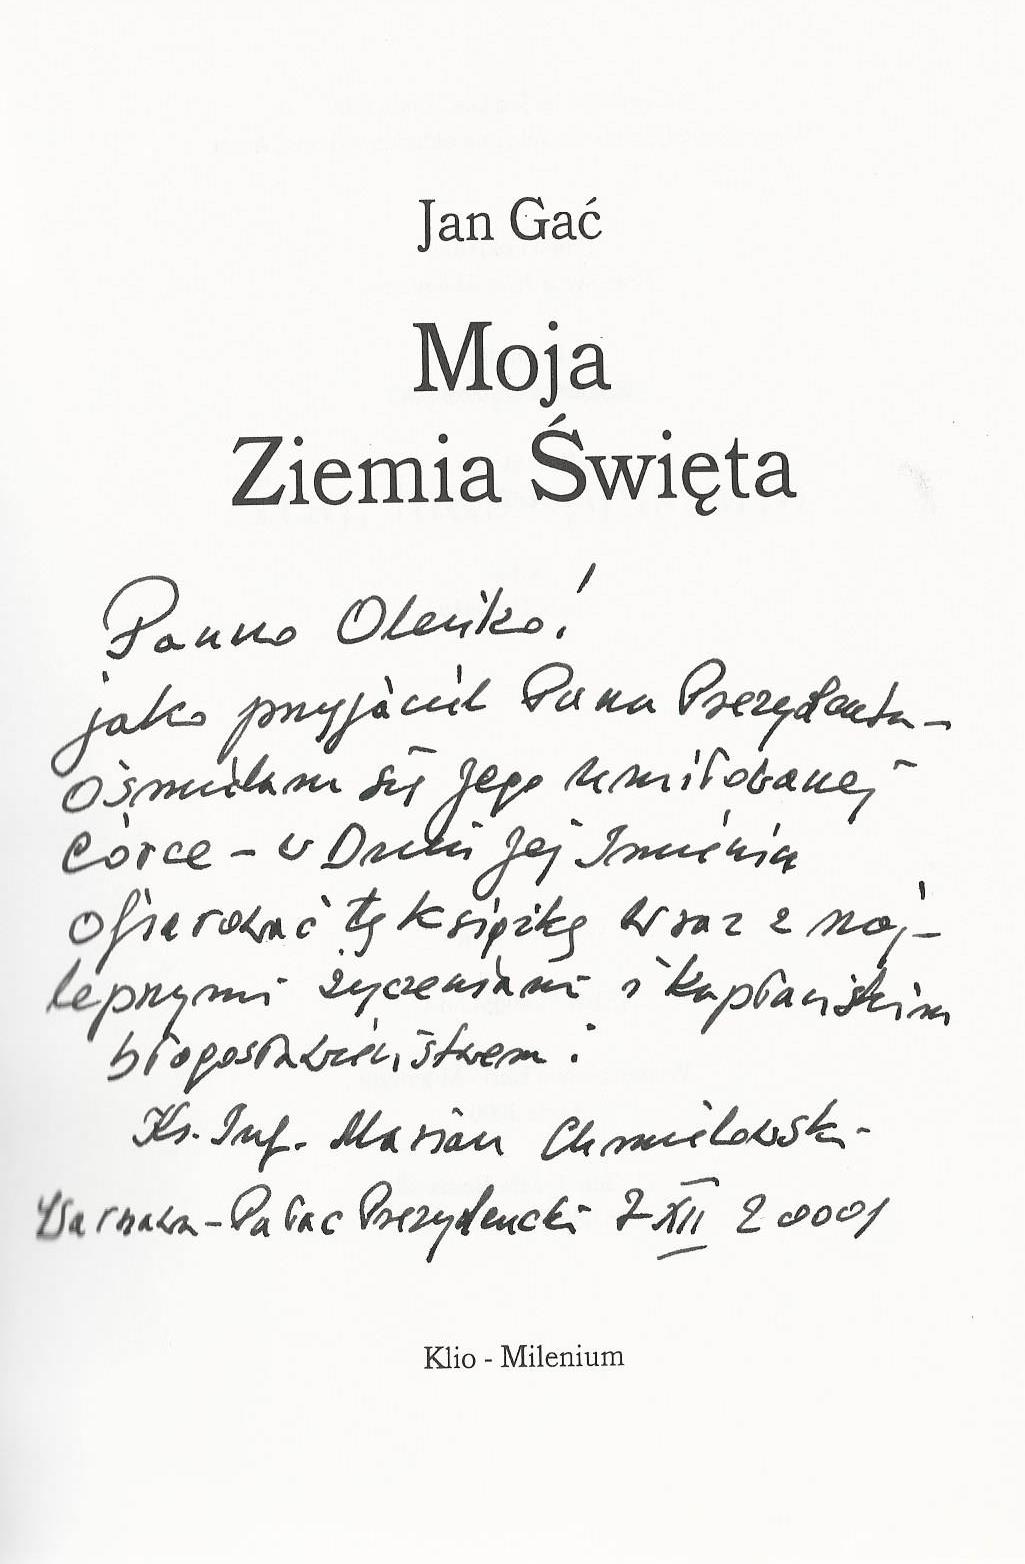 Jan Gać
Moja
Ziemia Święta
Panno Oleńko!
jako przyjaciel Pana Prezydenta –
ośmielam się Jego umiłowanej
Córce – w Dniu Jej Imienin
ofiarować tę książkę wraz z naj-
lepszymi życzeniami i kapłańskim
błogosławieństwem.
Ks. Inf. Marian Chmielowski
Warszawa – Pałac Prezydencki 7 XII
Klio - Milenium